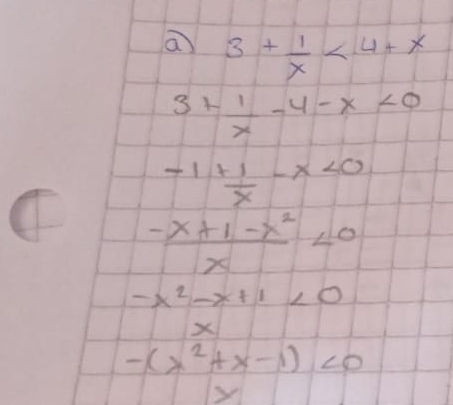 a) 3 + 1/x < 4 + x
3 + 1/x - 4 - x < 0
-1 + 1/x - x < 0
(-x + 1 - x²)/x < 0
(-x² - x + 1)/x < 0
-(x² + x - 1)/x < 0